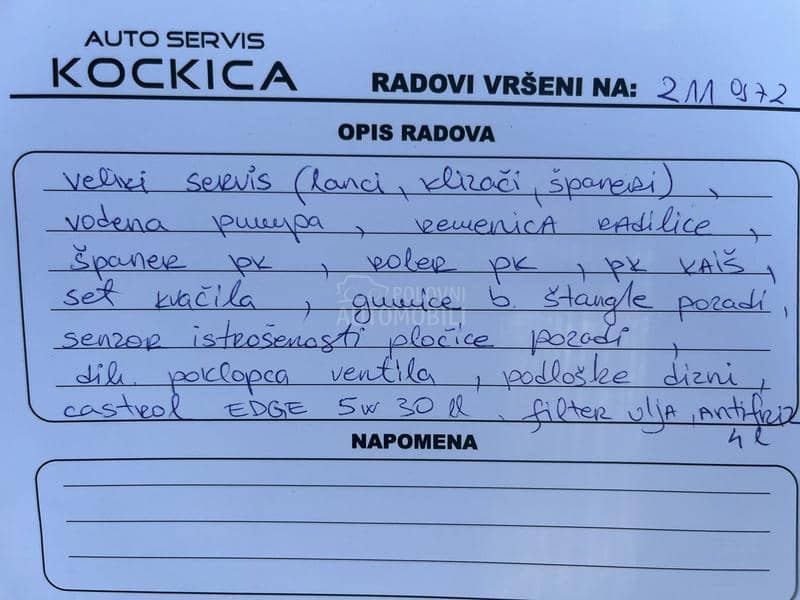 AUTO SERVIS
KOCKICA
RADOVI VRŠENI NA: 211 972
OPIS RADOVA
veliki servis (lanci, klizači, španeri),
vodena pumpa, remenica radilice,
španer pk, roler pk, pk kaiš,
set kvačila, gumice b. štangle pozadi,
senzor istrošenosti pločice pozadi,
dih. poklopca ventila, podloške dizni,
castrol EDGE 5w 30 l, filter ulja, antifriz
4 l
POLOVNI
AUTOMOBILI
NAPOMENA